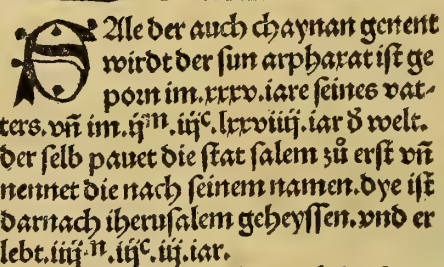 SAle der auch chaynan genent
wirdt der sun arpharat ist ge
porn im.xxxv.iare seines vat-
ters.vñ im.ijᵐ.iijᶜ.lxxviiij.iar d̕ welt.
der selb pauet die stat salem zů erst vñ
nennet die nach seinem namen.dye ist
darnach iherusalem geheyssen.vnd er
lebt.iiij.ⁿ.iijᶜ.iij.iar.